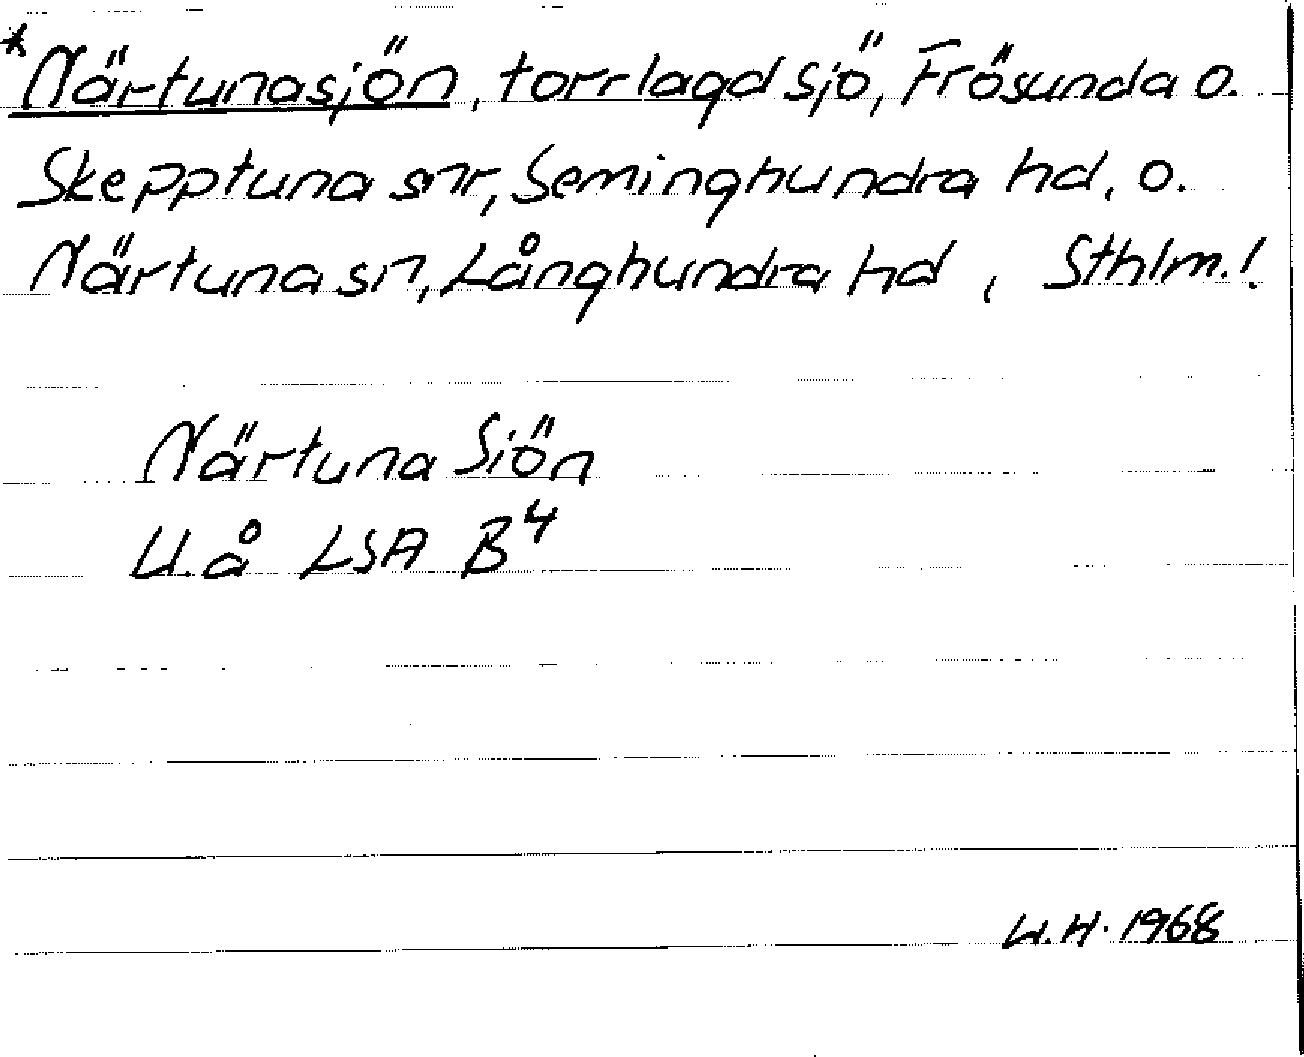 *Närtunasjön, torrlagd sjö, Frösunda o.
Skepptuna snr, Seminghundra hd, o.
Närtuna sn, Långhundra hd, Sthlm.l.
Närtuna Siön
U.å LSA B4
W.H. 1968